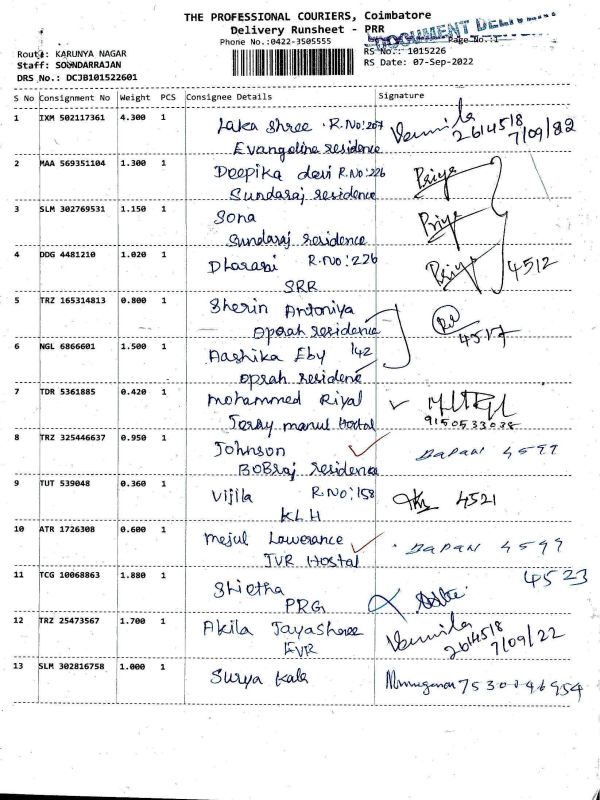 THE PROFESSIONAL COURIERS, Coimbatore
Delivery Runsheet - PRR
DOCUMENT DELIVERY
Phone No.:0422-3505555
Page No.:1
Route: KARUNYA NAGAR
RS No.: 1015226
Staff: SOUNDARRAJAN
RS Date: 07-Sep-2022
DRS No.: DCJB101522601
S No Consignment No Weight PCS Consignee Details Signature
1 IXM 502117361 4.300 1 Laka shree . R.No:207
Evangeline residence
Vennila 2614518 7/09/22
2 MAA 569351104 1.300 1 Deepika devi R.No:226 Priya
Sundaraj residence
3 SLM 302769531 1.150 1 Sona Priya
Sundaraj residence
4 DDG 4481210 1.020 1 Dharani R.No:226 Priya 4512
SRR
5 TRZ 165314813 0.800 1 Sherin Antoniya
Oprah residence 4517
6 NGL 6866601 1.500 1 Aashika Eby 142
oprah residence
7 TDR 5361885 0.420 1 Mohammed Riyal
Jerry manul Hostal 9150533038
8 TRZ 325446637 0.950 1 Johnson DAPAN 4599
BOBraj residence
9 TUT 539048 0.360 1 Vijila R.No:158 4521
KLH
10 ATR 1726308 0.600 1 Mejul Lawerance DAPAN 4599
JVR Hostal
11 TCG 10068863 1.880 1 Shietha 4523
PRG
12 TRZ 25473567 1.700 1 Akila Jayashree Vennila 2614518 7/09/22
EVR
13 SLM 302816758 1.000 1 Surya Kala